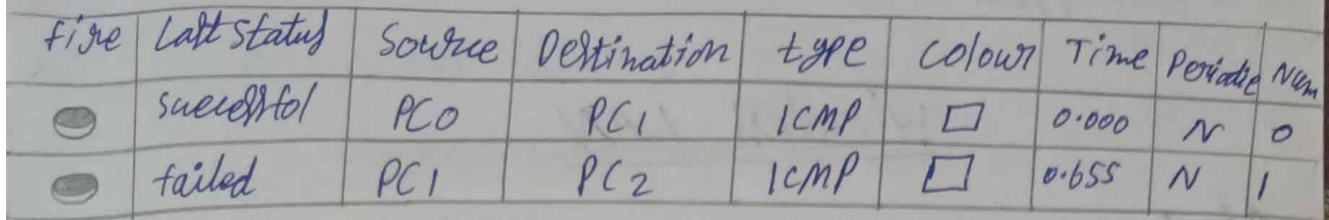 Fire Last Status Source Destination type Colour Time Periodic Num
successful PC0 PC1 ICMP 0.000 N 0
failed PC1 PC2 ICMP 0.655 N 1